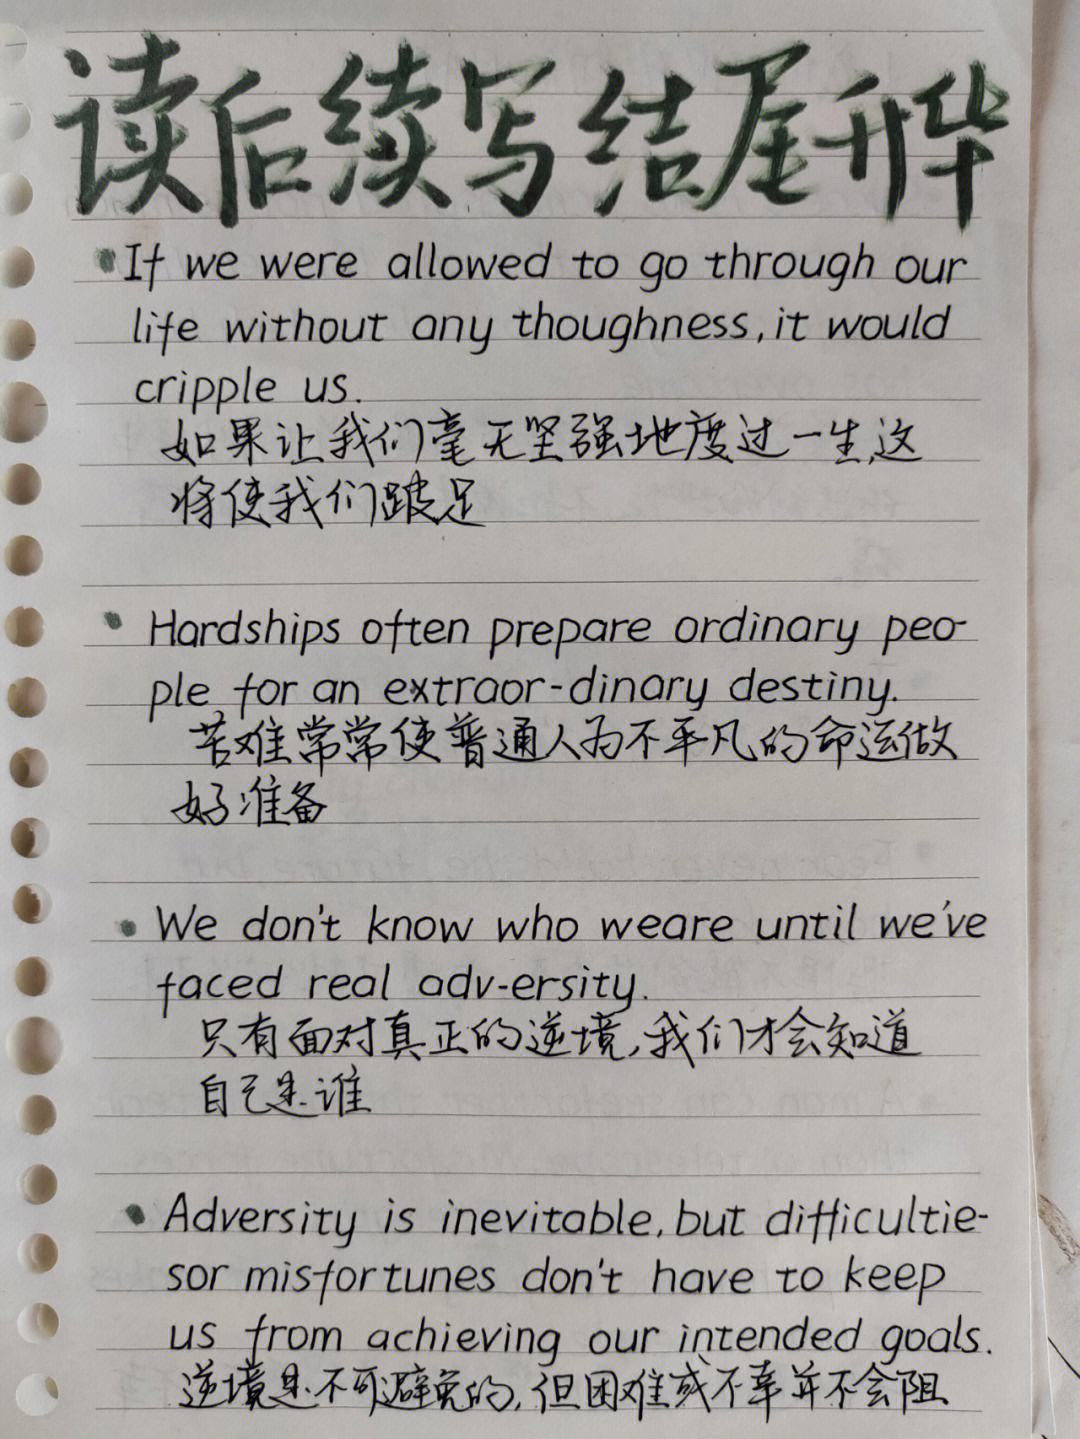 读后续写结尾升华
If we were allowed to go through our
life without any thoughness, it would
cripple us.
如果让我们毫无坚强地度过一生,这
将使我们跛足
Hardships often prepare ordinary peo-
ple for an extraor-dinary destiny.
苦难常常使普通人为不平凡的命运做
好准备
We don't know who weare until we've
faced real adv-ersity.
只有面对真正的逆境,我们才会知道
自己是谁
Adversity is inevitable, but difficultie-
sor misfortunes don't have to keep
us from achieving our intended goals.
逆境是不可避免的,但困难或不幸并不会阻